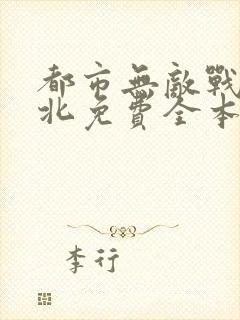 都市無敵戰
北免費全本
李行